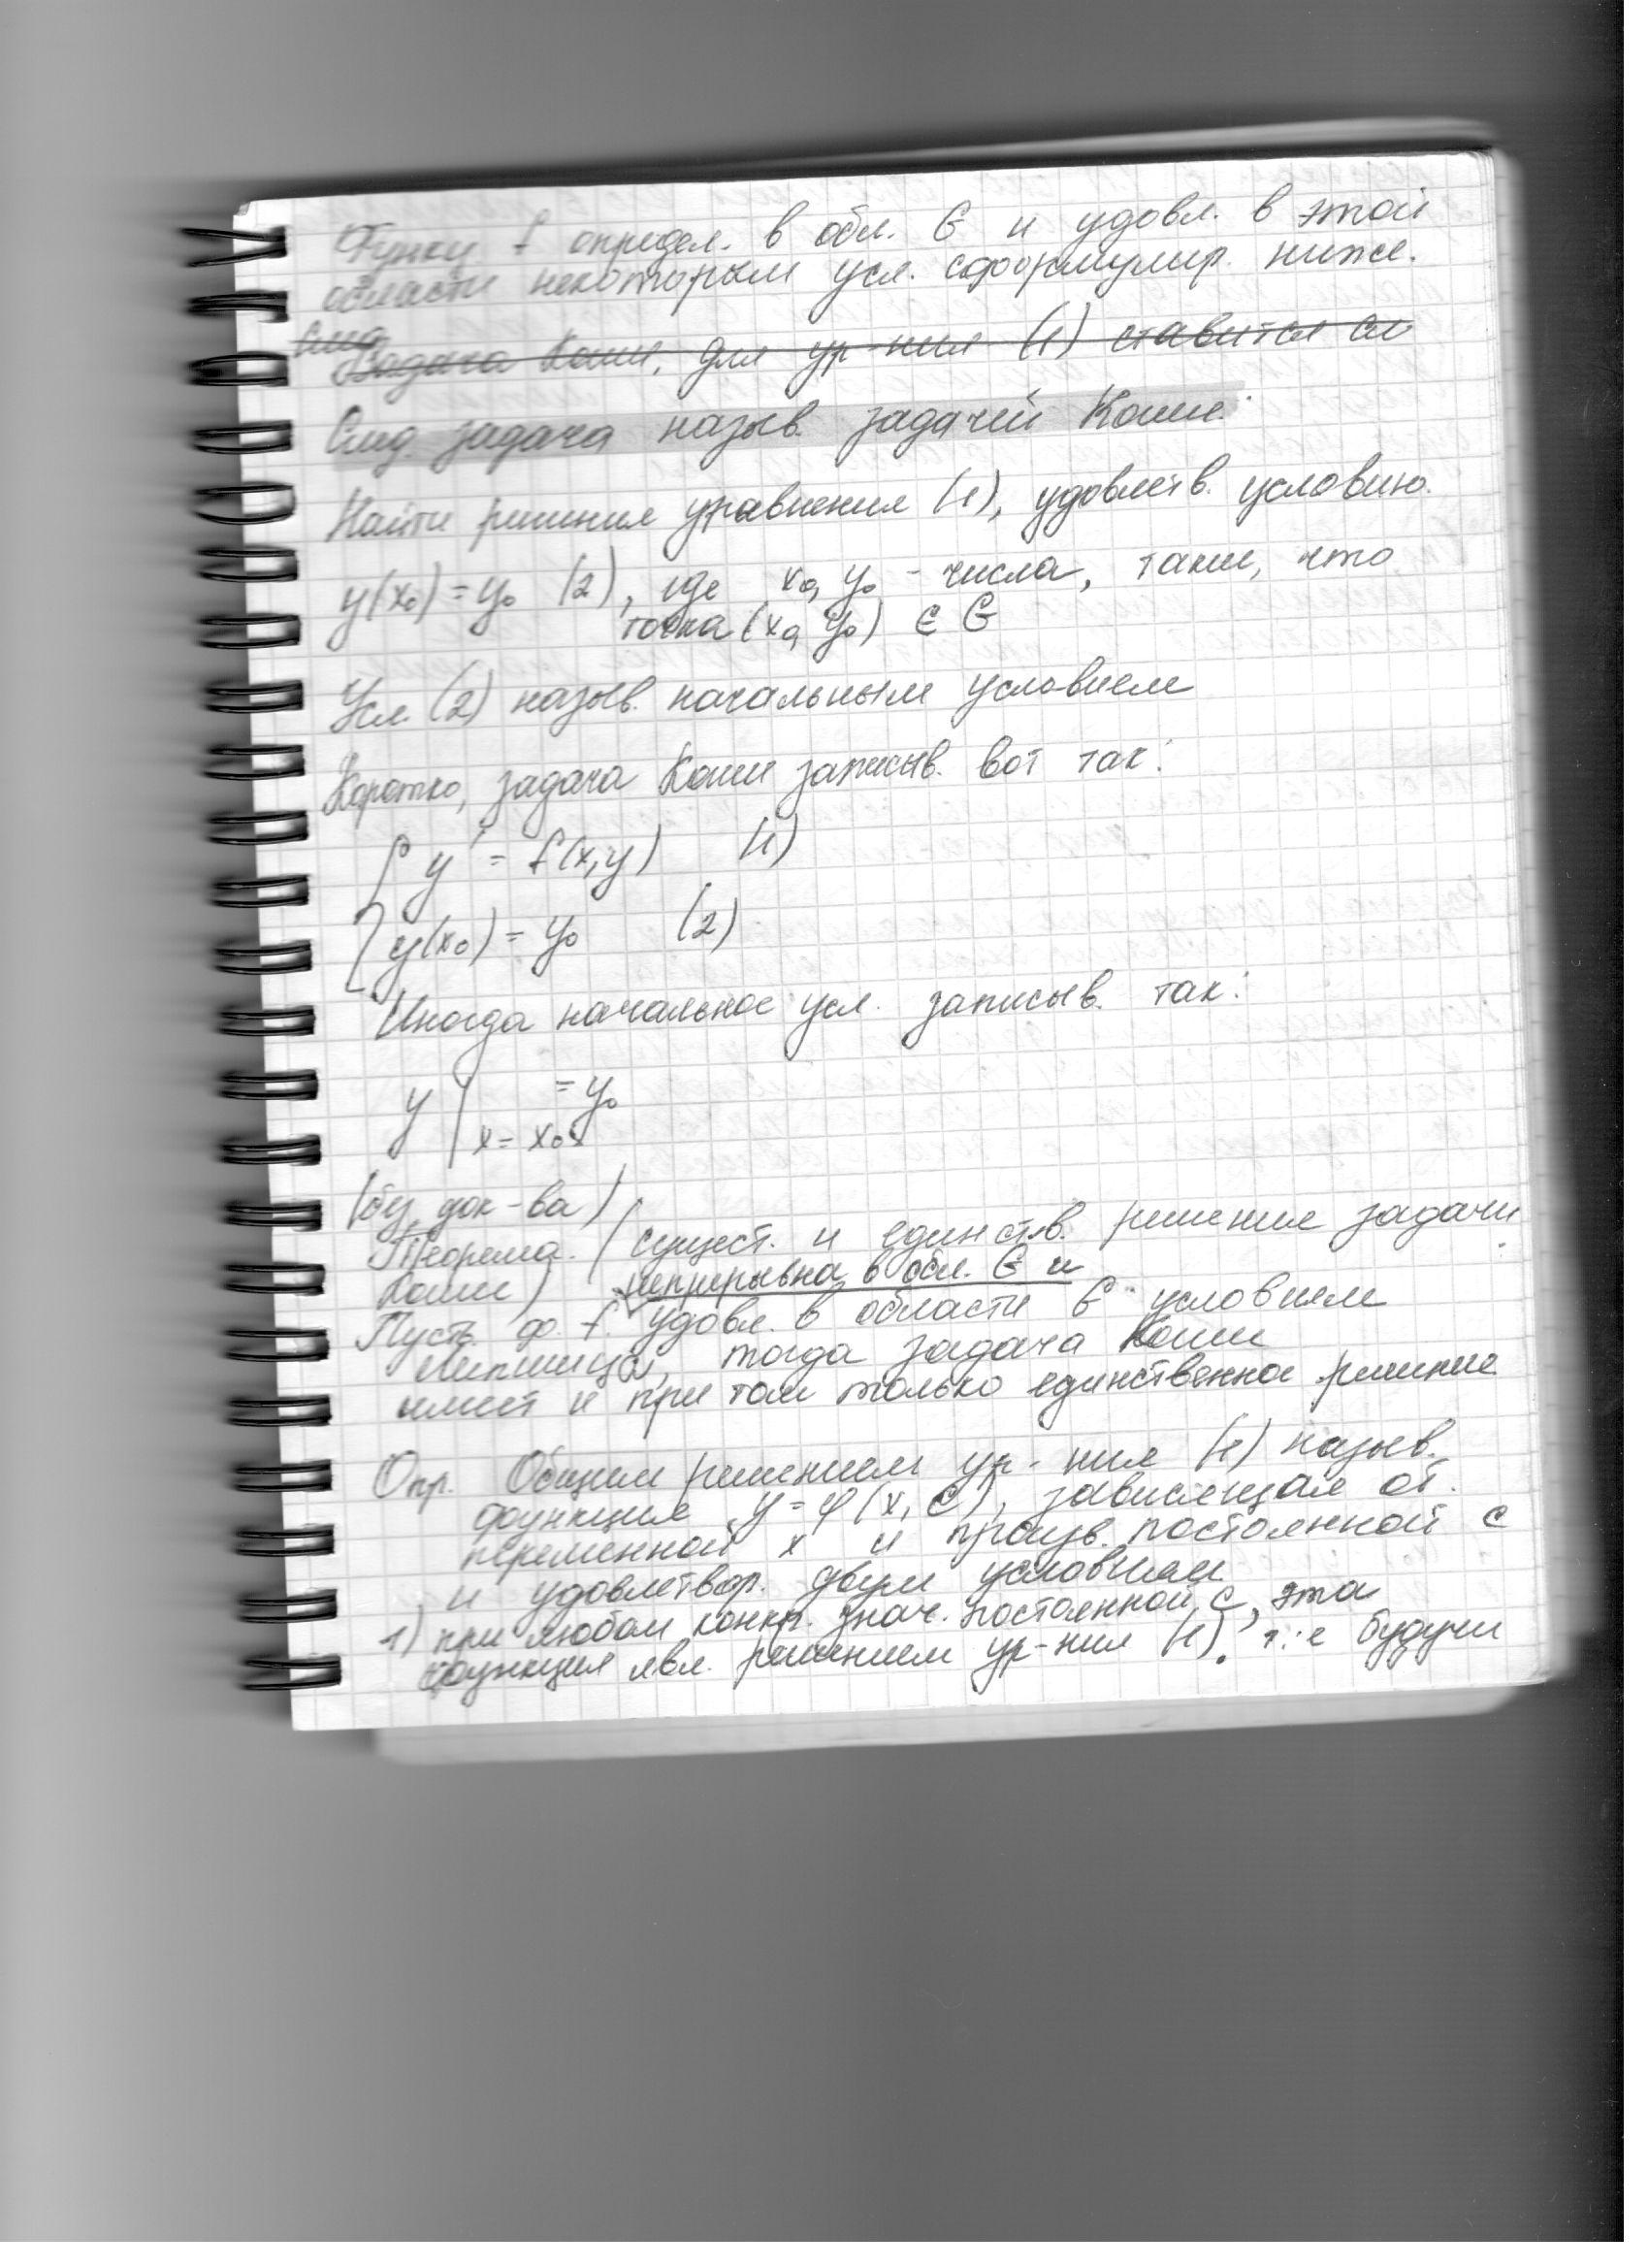 Функц f определ. в обл. G и удовл. в этой
области некоторым усл. сформулир. ниже.
След
Задача Коши, для ур-ния (1) ставится сл
След. задача назыв. задачей Коши:
Найти решения уравнения (1), удовлетв. условию.
y(x₀) = y₀ (2), где x₀, y₀ - числа, такие, что
точка (x₀, y₀) ∈ G
Усл. (2) назыв. начальным условием
Коротко, задача Коши записыв. вот так:
{ y' = f(x,y) (1)
y(x₀) = y₀ (2)
Иногда начальное усл. записыв. так:
y | = y₀
x = x₀
(без док-ва)
Теорема. (сущест. и единств. решение задачи
Коши) непрерывна в обл. G и
Пусть ф. f. удовл. в области G условием
Липшица, тогда задача Коши
имеет и при том только единственное решение
Опр. Общим решением ур-ния (1) назыв.
функция y = φ(x, C), зависящая от.
переменной x и произв. постоянной c
и удовлетвор. двум условиям
1) при любом конкр. знач. постоянной c, эта
функция явл. решением ур-ния (1), т.е будучи